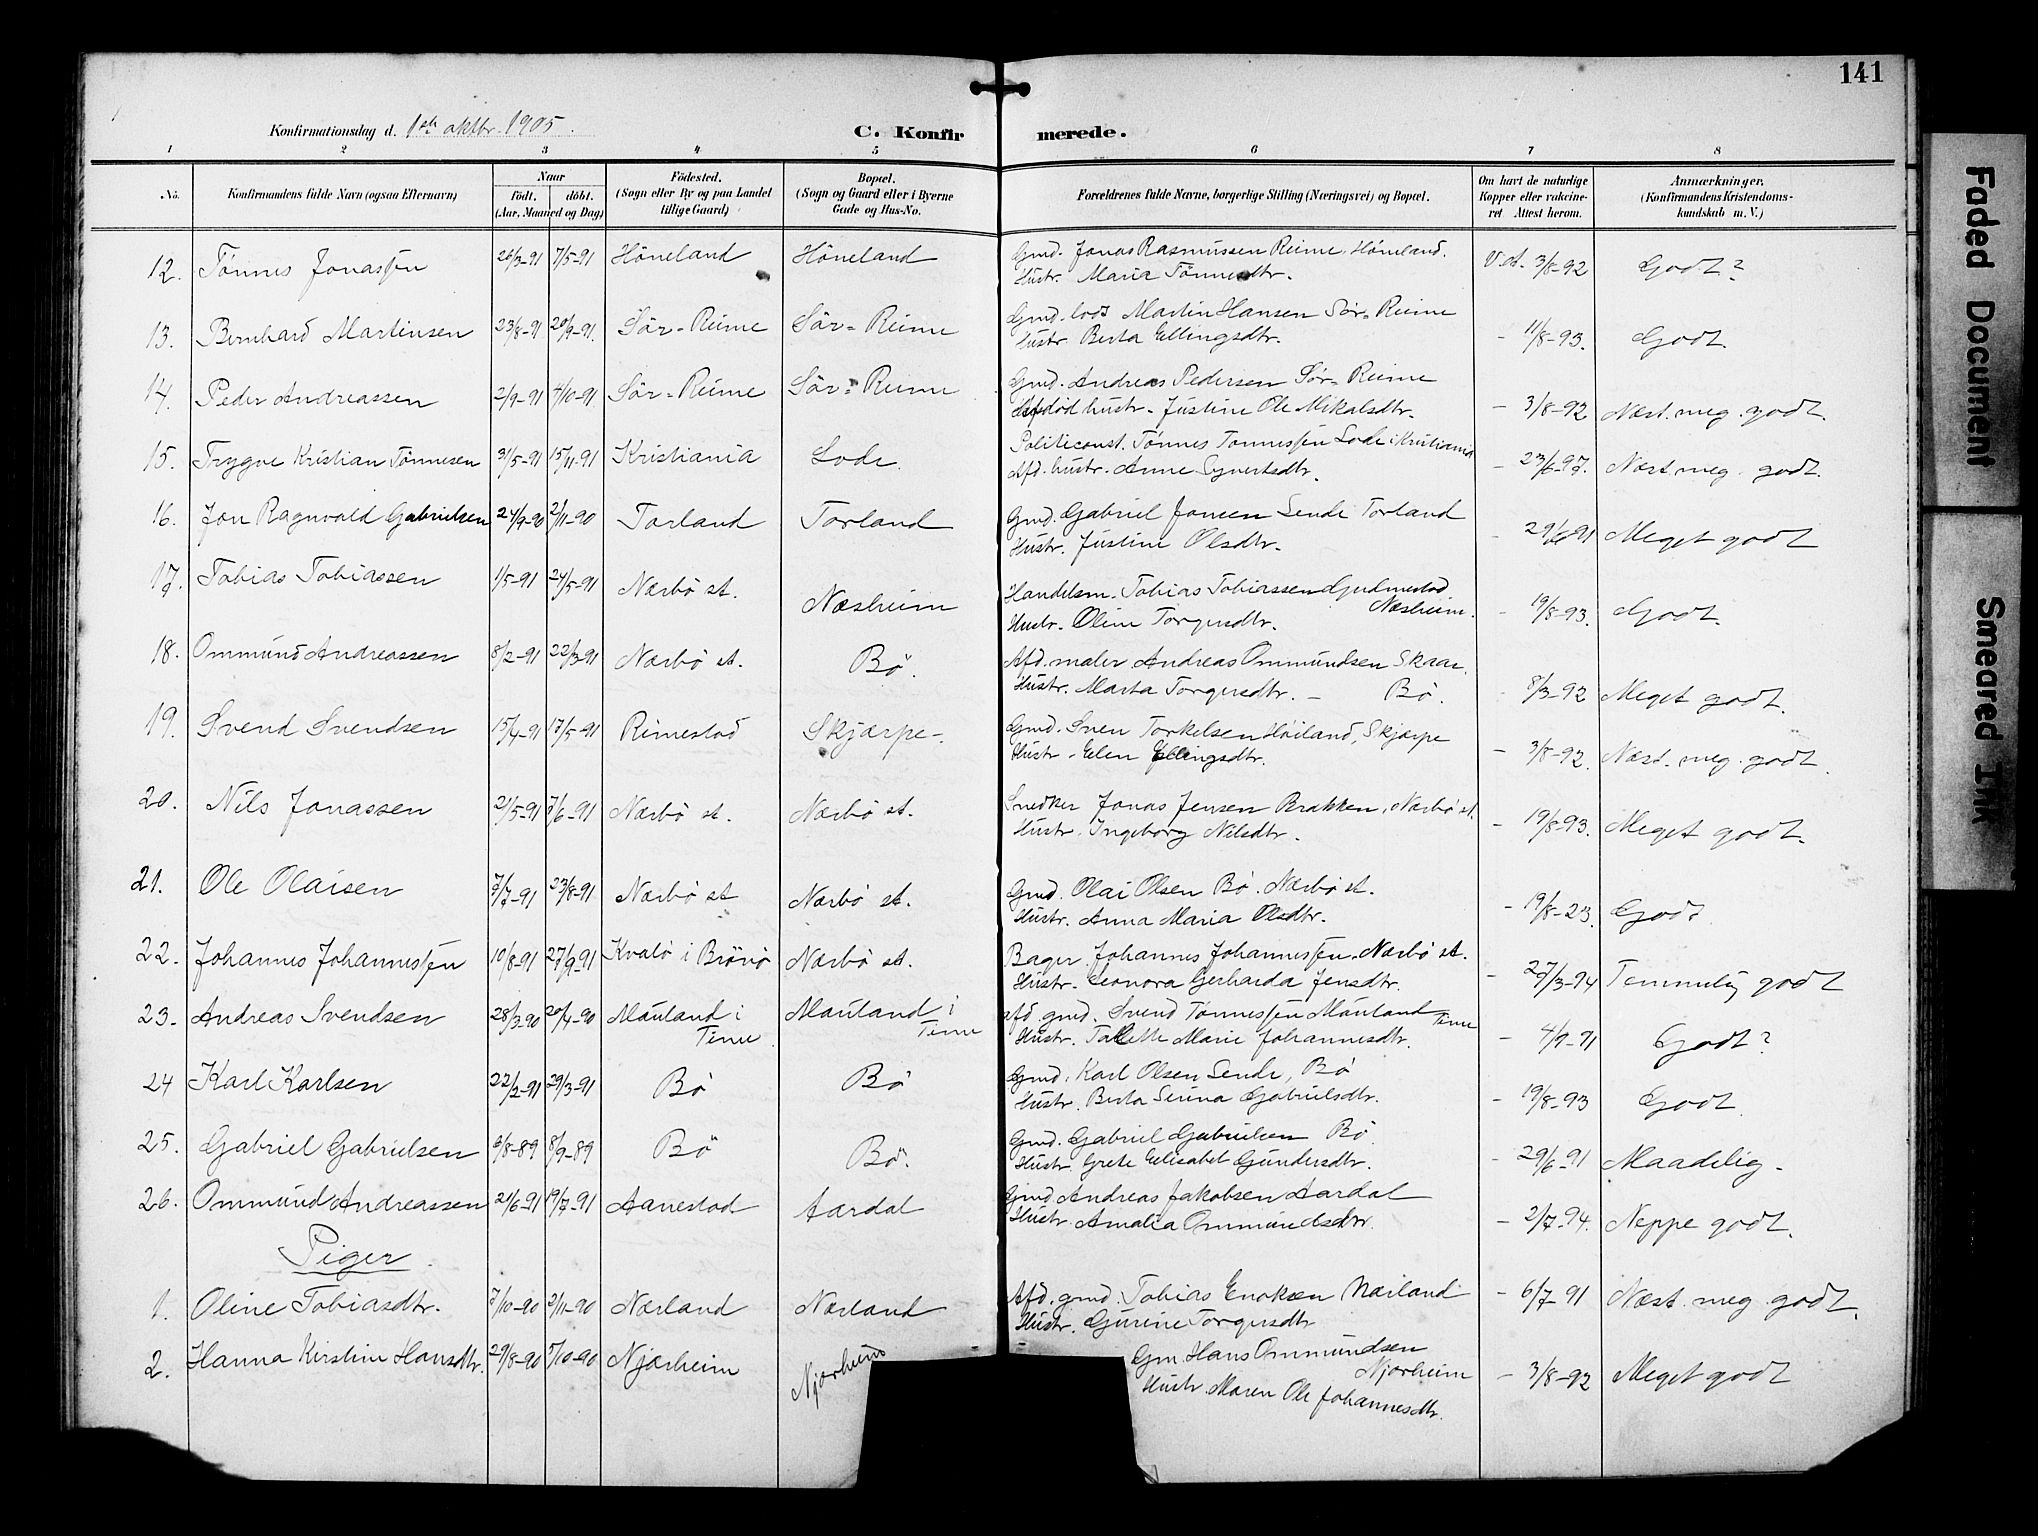 141
Konfirmationsdag d. 1ste oktbr. 1905.
C. Konfirmerede.
1 2 3 4 5 6 7 8
No. Konfirmandens fulde Navn (ogsaa Efternavn) Naar født. døbt. (Aar, Maaned og Dag) Födested. (Sogn eller By og paa Landet tillige Gaard) Bopæl. (Sogn og Gaard eller i Byerne Gade og Hus-No. Forældrenes fulde Navne, borgerlige Stilling (Næringsvei) og Bopæl. Om havt de naturlige Kopper eller vakcineret Attest herom. Anmærkninger. (Konfirmandens Kristendomskundskab m. V.)
12. Tönnes Jonassen 26/3-91 7/5-91 Höneland Höneland Gmd. Jonas Rasmussen Reime, Höneland. V.at. 3/8-92 Godt?
Hustr. Maria Tönnesdtr.
13. Bernhard Martinsen 23/8-91 20/9-91. Sör-Reime Sör-Reime Gmd. lods Martin Hansen Sör-Reime - 11/8-93. Godt.
Hustr Berta Ellingsdtr.
14. Peder Andreassen 2/9-91 4/10-91. Sör-Reime Sör-Reime Gmd. Andreas Pedersen Sör-Reime - 3/8-92 Næst. meg. godt.
Afdød hustr. Justine Ole Mikalsdtr.
15. Trygve Kristian Tönnesen 31/5-91 15/11-91 Kristiania Lode. Politiconst. Tönnes Tönnessen Lode i Kristiania - 23/6-97. Næst. meg. godt.
Afd. hustr. Anne Syvertsdtr.
16. Jon Ragnvald Gabrielsen 24/9-90 2/11-90 Torland Torland Gmd. Gabriel Jonsen Sende Torland - 29/6-91 Meget godt
Hustr. Justine Olsdtr.
17. Tobias Tobiassen 1/5-91 24/5-91 Nærbö st. Næsheim Handelsm. Tobias Tobiassen Gudmestad Næsheim. - 19/8-93. Godt
Hustr. Oline Torgersdtr.
18. Ommund Andreassen 8/2-91 22/3-91 Nærbö st. Bö. Afd. maler Andreas Ommundsen Skaar. - 8/3-92 Meget godt.
Hustr. Marta Torgersdtr. - Bö.
19. Svend Svendsen 15/4-91 17/5-91 Rimestad Skjærpe-. Gmd. Sven Torkelsen Höiland, Skjærpe - 3/8-92. Næst. meg. godt.
Hustr. Elen Ellingsdtr.
20. Nils Jonassen 21/5-91 7/6-91 Nærbö st. Nærbö st. Snedker Jonas Jensen Brakken, Nærbö st. - 19/8-93. Meget godt.
Hustr. Ingeborg Nilsdtr.
21. Ole Olaisen 7/7-91 23/8-91 Nærbö st Nærbö st. Gmd. Olai Olsen Bö. Nærbö st. - 19/8-23. Godt
Hustr. Anna Maria Olsdtr.
22. Johannes Johannessen 10/8-91 27/9-91 Kvalö i Brönö Nærbö st. Bager Johannes Johannessen. Nærbö st. - 27/3-94 Temmelig godt
Hustr. Leonora Gerharda Jensdtr.
23. Andreas Svendsen 28/3-90 20/4-90 Mauland i Time Mauland i Time afd. gmd. Svend Tönnessen Mauland Time - 4/9-91 Godt?
Hustr. Talette Marie Johannesdtr.
24 Karl Karlsen 22/2-91 29/3-91 Bö Bö Gmd. Karl Olsen Sende, Bö - 19/8-93 Godt.
Hustr. Berta Serina Gabrielsdtr.
25. Gabriel Gabrielsen 6/8-89 8/9-89 Bö Bö. Gmd. Gabriel Gabrielsen Bö. - 29/6-91 Maadelig.
Hustr. Grete Elisabet Gundersdtr.
26. Ommund Andreassen 21/6-91 19/7-91 Aanestad Aardal Gmd. Andreas Jakobsen Aardal - 2/7-94. Neppe godt.
Hustr. Amalia Ommundsdtr.
Piger.
1. Oline Tobiasdtr. 7/10-90 2/11-90 Nærland Nærland Afd. gmd. Tobias Enoksen Nærland - 6/7-91 Næst. meg. godt.
Hustr. Gurine Torgersdtr
2. Hanna Kirstine Hansdtr. 29/8-90 5/10-90 Njærheim Njærheim Gm. Hans Ommundsen Njærheim - 3/8-92 Meget godt
Hustr. Maren Ole Johannesdtr.
Faded Document
Smeared Ink